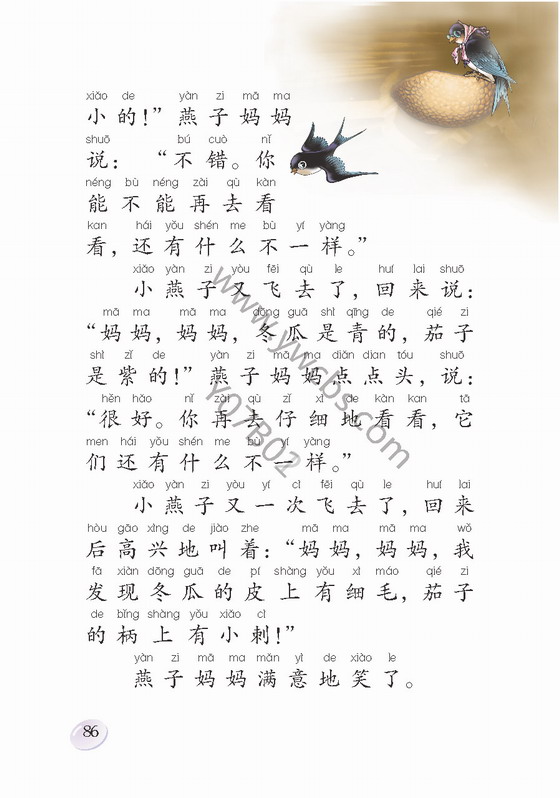 xiǎo de yàn zi mā ma
小的！”燕子妈妈
shuō bú cuò nǐ
说：“不错。你
néng bù néng zài qù kàn
能不能再去看
kan hái yǒu shén me bù yí yàng
看，还有什么不一样。”
xiǎo yàn zi yòu fēi qù le huí lai shuō
小燕子又飞去了，回来说：
mā ma mā ma dōng guā shì qīng de qié zi
“妈妈，妈妈，冬瓜是青的，茄子
shì zǐ de yàn zi mā ma diǎn dian tóu shuō
是紫的！”燕子妈妈点点头，说：
hěn hǎo nǐ zài qù zǐ xì de kàn kan tā
“很好。你再去仔细地看看，它
men hái yǒu shén me bù yí yàng
们还有什么不一样。”
xiǎo yàn zi yòu yí cì fēi qù le huí lai
小燕子又一次飞去了，回来
hòu gāo xìng de jiào zhe mā ma mā ma wǒ
后高兴地叫着：“妈妈，妈妈，我
fā xiàn dōng guā de pí shàng yǒu xì máo qié zi
发现冬瓜的皮上有细毛，茄子
de bǐng shàng yǒu xiǎo cì
的柄上有小刺！”
yàn zi mā ma mǎn yì de xiào le
燕子妈妈满意地笑了。
86
www.ywcbs.com
Y07B02